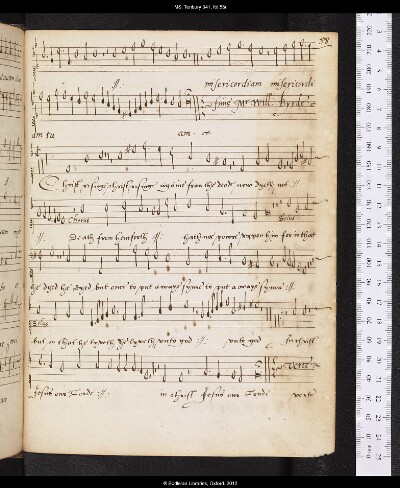 MS. Tenbury 341, fol.58r
58
misericordiam misericordi
finis Mr Will. Byrde
am tu am
Christ risinge christ risinge againe from the deade now dyeth not :||:
Chorus
:||: Death from henceforth :||: hath no power uppon him for in that
he dyed he dyed but once to put awaye synne to put awaye synne :||:
but in that he lyveth he lyveth unto god :||: unto god in christ
Jesus our Lorde :||: in christ Jesus our Lorde
© Bodleian Libraries, Oxford, 2012